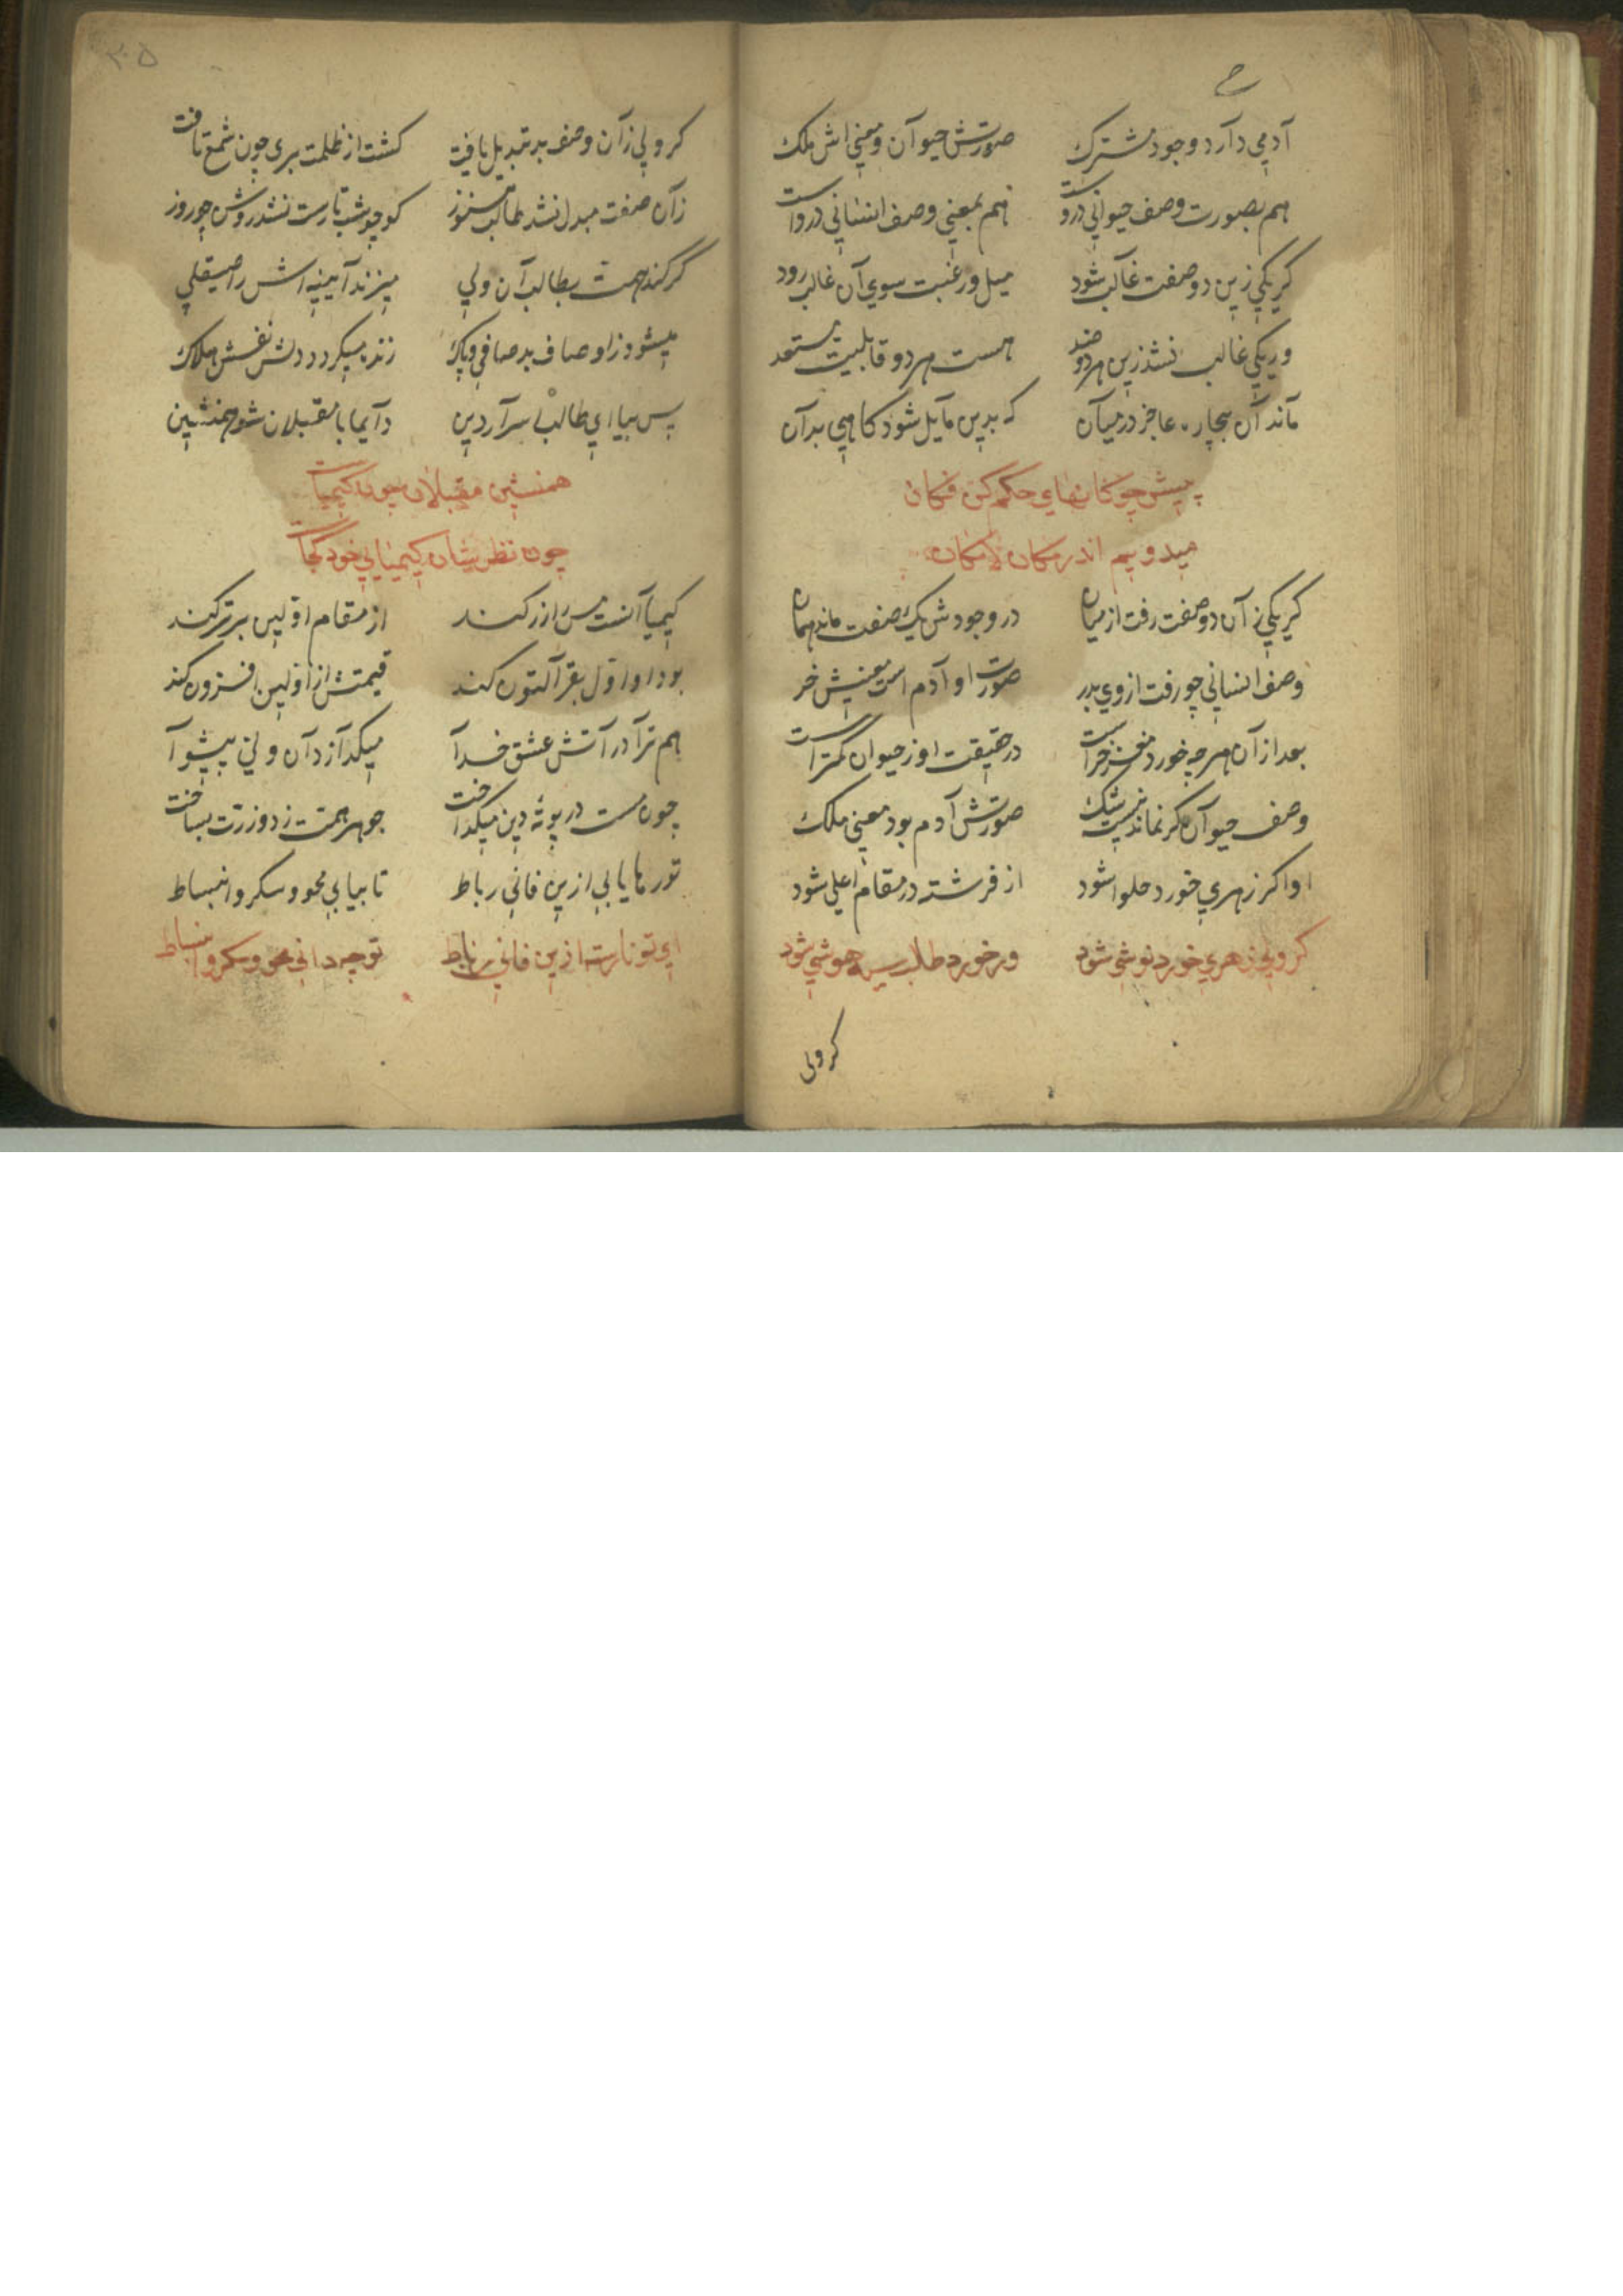 آدمی دآرد وجود مشترک صورتش حیوآن و معنی اش ملک
هم بصورت وصف حیوانی دروست هم بمعنی وصف انسانی درواست
کر یکی زین دو صفت غآلب شود میل و رغبت سوی آن غالب رود
ور یکی غالب نشد زین هر دو ضد هست هر دو قابلیت مستعد
مآند آن بیچاره عاجز درمیآن که بدین مآیل شود کاهی بدآن
پیش چوکانهای حکم کن فکان
میدویم اندر مکان لامکان
کر یکی زآن دو صفت رفت از میان در وجودش یک صفت ماند همان
وصف انسانی چو رفت از وی بدر صورت او آدم است معنیش خر
بعد از آن هر چه خورد مغز خرآست در حقیقت او ز حیوان کمتر است
وصف حیوآن کر نماند نیست شک صورتش آدم بود معنی ملک
او اکر زهری خورد حلوا شود از فرشته در مقام اعلی شود
کر ولی زهری خورد نوشی شود ور خورد طالب سیه هوشی شود
کر ولی
۳۰۵
کر ولی زآن وصف بد تبدیل یافت کشت از ظلمت بری چون شمع تافت
زآن صفت مبدل نشد طالب هنوز کو چو شب تارست نشد روشن چو روز
کر کند همت بطالب آن ولی میزند آیینه اش را صیقلی
میشود ز اوصاف بد صافی و پاک زنده میکردد دلش نفسش هلاک
پس بیا ای طالب اسرآر دین دآیما با مقبلان شو همنشین
همنشین مقبلان چون کیمیاست
چون نظرشان کیمیایی خود کجاست
کیمیا آنست مس را زر کند از مقام اولین برتر کند
بود او اول بقر آلتون کند قیمتش از اولین افزون کند
هم ترآ در آتش عشق خدآ میکدآزد آن ولی پیشوآ
چون مست در بوته دین میکداخت جوهر همت زد و زرت بساخت
تو رها یابی ازین فانی رباط تا بیابی محو و سکر و انبساط
ای تو نارسته ازین فانی رباط تو چه دانی محو و سکر و انبساط